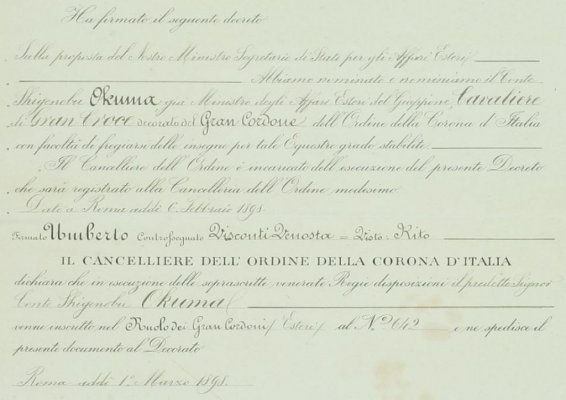 Ha firmato il seguente decreto
Sulla proposta del Nostro Ministro Segretario di Stato per gli Affari Esteri
Abbiamo nominato e nominiamo il Conte
Shigenobu Okuma già Ministro degli Affari Esteri del Giappone, Cavaliere
di Gran Croce decorato del Gran Cordone dell'Ordine della Corona d'Italia
con facoltà di fregiarsi delle insegne per tale Equestre grado stabilite
Il Cancelliere dell'Ordine è incaricato dell'esecuzione del presente Decreto
che sarà registrato alla Cancelleria dell'Ordine medesimo.
Dato a Roma addì 6 Febbraio 1898
Firmato Umberto Controssegnato Visconti Venosta = Visto:
IL CANCELLIERE DELL' ORDINE DELLA CORONA D'ITALIA
dichiara che in esecuzione delle soprascritte venerate Regie disposizioni il predetto Signor
Conte Shigenobu Okuma
venne inscritto nel Ruolo dei Gran Cordoni (Esteri) al N.º 642 e ne spedisce il
presente documento al Decorato
Roma addì 1º Marzo 1898.